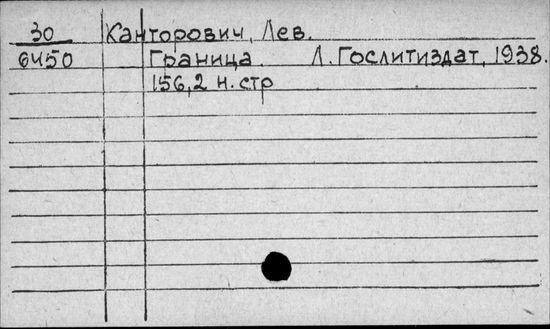 30 Канторович, Лев.
6450 Граница. Л. Гослитиздат, 1938.
156,2 н. стр